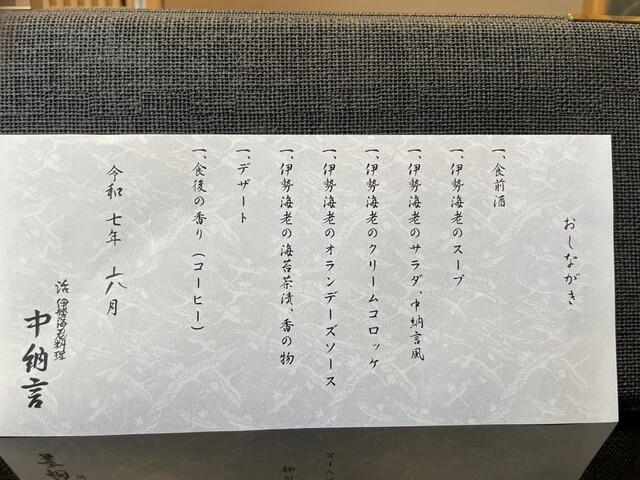 おしながき
一、食前酒
一、伊勢海老のスープ
一、伊勢海老のサラダ、中納言風
一、伊勢海老のクリームコロッケ
一、伊勢海老のオランデーズソース
一、伊勢海老の海苔茶漬、香の物
一、デザート
一、食後の香り（コーヒー）
令和 七年 六月
活 伊勢海老料理
中納言